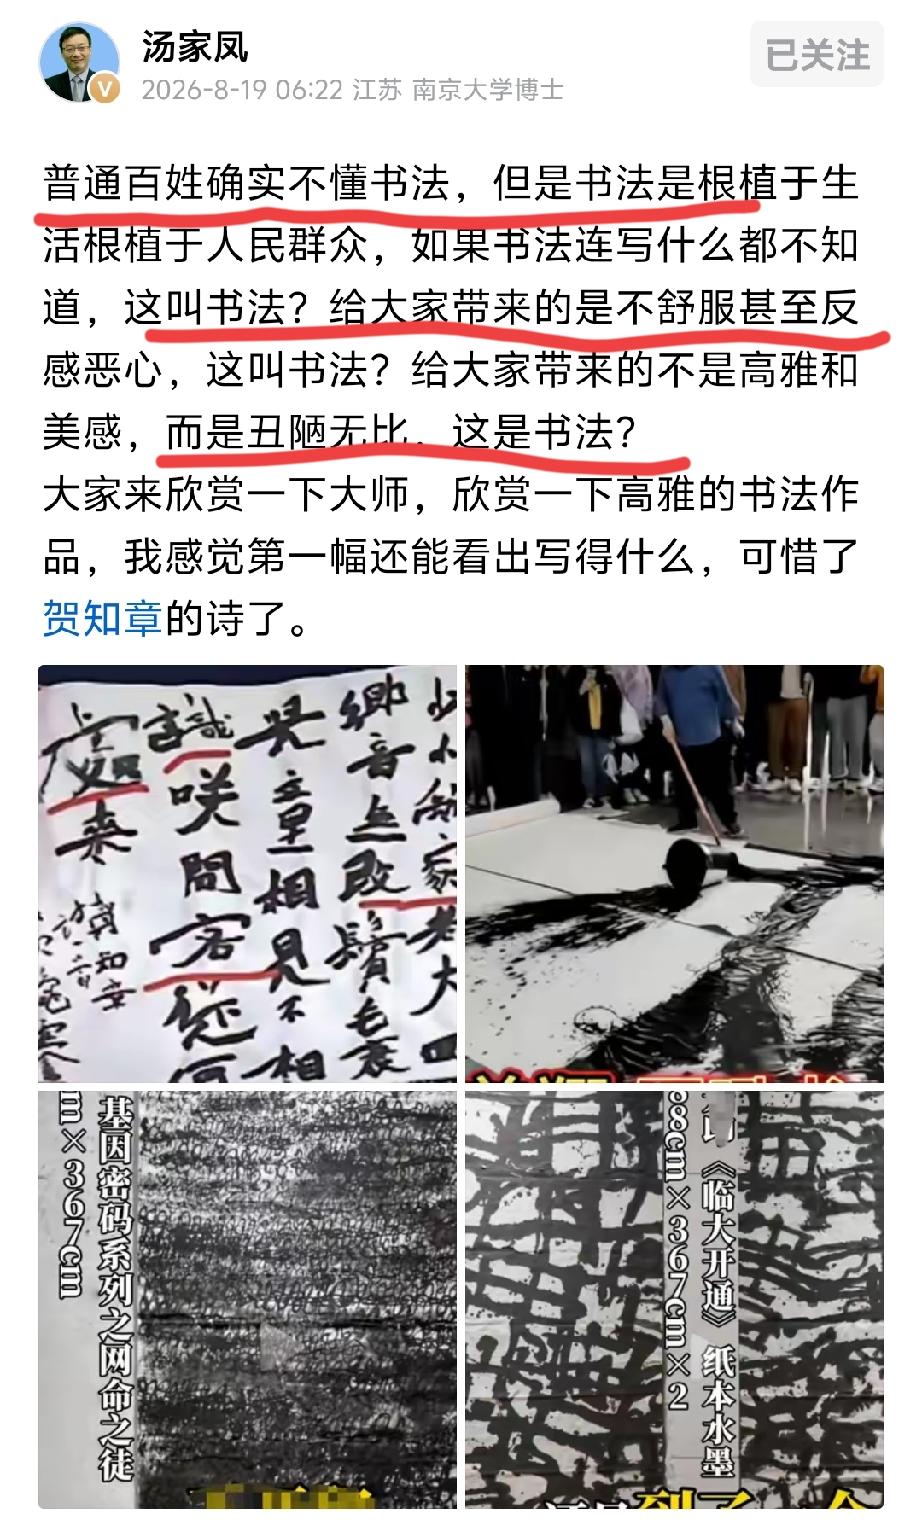 汤家凤
已关注
V
2026-8-19 06:22 江苏 南京大学博士
普通百姓确实不懂书法，但是书法是根植于生
活根植于人民群众，如果书法连写什么都不知
道，这叫书法？给大家带来的是不舒服甚至反
感恶心，这叫书法？给大家带来的不是高雅和
美感，而是丑陋无比，这是书法？
大家来欣赏一下大师，欣赏一下高雅的书法作
品，我感觉第一幅还能看出写得什么，可惜了
贺知章的诗了。
家老大四
鄉音無改鬢毛衰
見童相見不相
識咲問客從何
處来
賀知章
基因密码系列之网命之徒
m×367cm
《临大开通》 纸本水墨
88cm×367cm×2